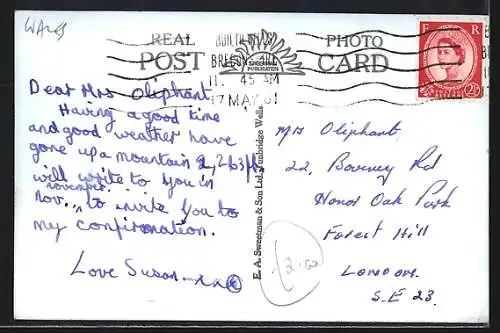 WALES
REAL PHOTO
POST CARD
BUILTH WELLS
BRECONSHIRE
11. 45 AM
17 MAY 61
E R
2½D
Dear Mrs Oliphant,
Having a good time
and good weather have
gone up a mountain 2,263 ft
will write to you in
november
nov.. to invite you to
my confirmation.
Love Susan xxx
E. A. Sweetman & Son Ltd., Tunbridge Wells
Mrs Oliphant
22, Borney Rd
Honor Oak Park
Forest Hill
London
S.E 23.
2.00